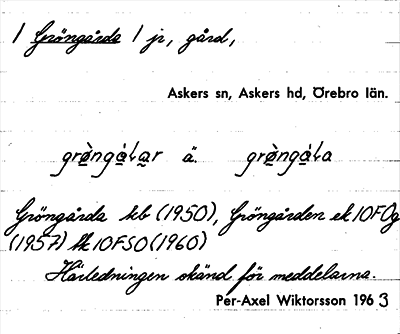 1 Gröngårda 1 jr, gård,
Askers sn, Askers hd, Örebro län.
grö̀ngåłar ä. grö̀ngåła
Gröngårda kb (1950), Gröngården ek 10F0g
(1957) 10F50 (1960)
Härledningen okänd för meddelarna.
Per-Axel Wiktorsson 1963